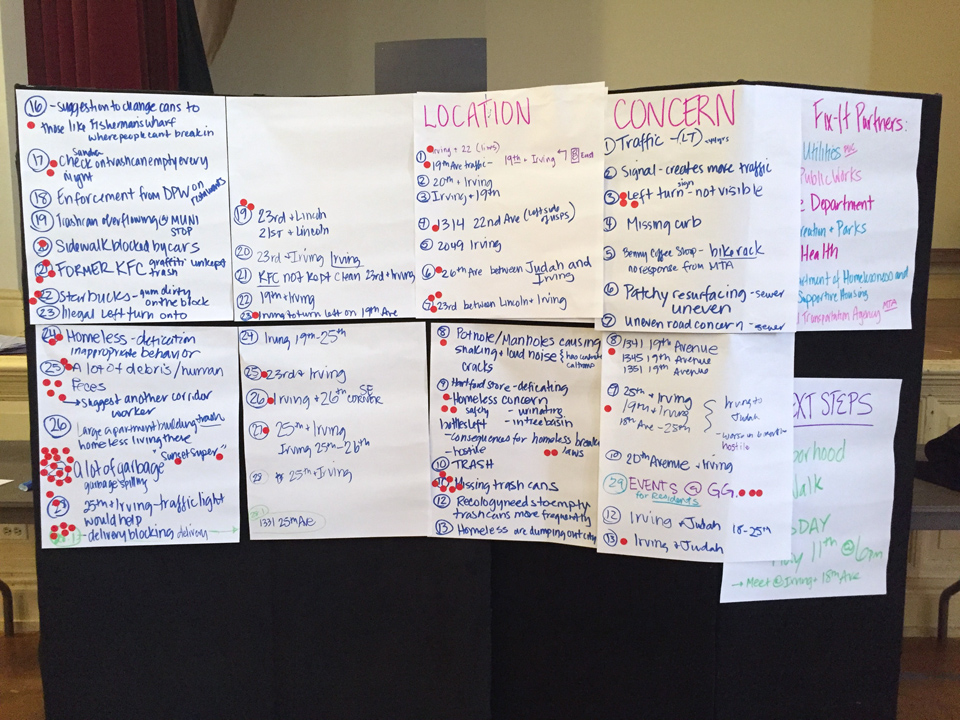 16 - suggestion to change cans to
those like Fisherman's wharf
where people cant break in
17 Sandra
check on trashcan empty every
night
18 Enforcement from DPW on
19 Trashcan overflowing @ MUNI
STOP
20 Sidewalk blocked by cars
21 FORMER KFC graffiti unkept
trash
22 Starbucks - gum dirty
on the block
23 Illegal Left turn onto
19 23rd + Lincoln
21ST + Lincoln
20 23rd + Irving Irving
21 KFC not kept clean 23rd + Irving
22 19th + Irving
23 Irving to turn left on 19th Ave
LOCATION
1 Irving + 22 (lives)
19th Ave traffic - 19th + Irving
East
2 20th + Irving
3 Irving + 19th
4 1314 22nd Ave (Left side
of USPS)
5 2049 Irving
6 26th Ave between Judah and
Irving
7 23rd between Lincoln + Irving
CONCERN
1) Traffic - (LT)
2 Signal - creates more traffic
3 Left turn sign - not visible
4 Missing curb
5 Benny Coffee Shop - bike rack
no response from MTA
6 Patchy resurfacing - sewer
uneven
7 Uneven road concern - sewer
Fix-It Partners:
Utilities PUC
Public Works
e Department
reation + Parks
Health
artment of Homelessness and
Supportive Housing
l Transportation Agency MTA
24 Homeless - defication
inappropriate behavior
25 A lot of debris/human
Feces
→ suggest another corridor
worker
26 Large apartment building trash
homeless living there
A lot of garbage "Sunset Super"
garbage spilling
25th + Irving - traffic light
would help
- delivery blocking delivery
24 Irving 19th - 25th
25 23rd + Irving
26 Irving + 26th SE
CORNER
27 25th + Irving
Irving 25th - 26th
25th + Irving
1331 25th Ave
8 Pothole/Manholes causing
shaking + loud noise
cracks
9 Hartford store - deficating
- Homeless concern
safety - urinating
bottles left - in tree basin
- consequences for homeless break
- hostile laws
10 TRASH
Missing trash cans
12 Recology needs to empty
trashcans more frequently
13 Homeless are dumping out city
8 1341 19th Avenue
1345 19th Avenue
1351 19th Avenue
9 25th + Irving
19th + Irving
18th Ave - 25th
Irving to
Judah
hostile
10 20th Avenue + Irving
29 EVENTS @ GG
for Residents
12 Irving + Judah 18-25th
13 Irving + Judah
EXT STEPS
orhood
alk
SDAY
11th @ 6pm
→ Meet @ Irving + 18th Ave